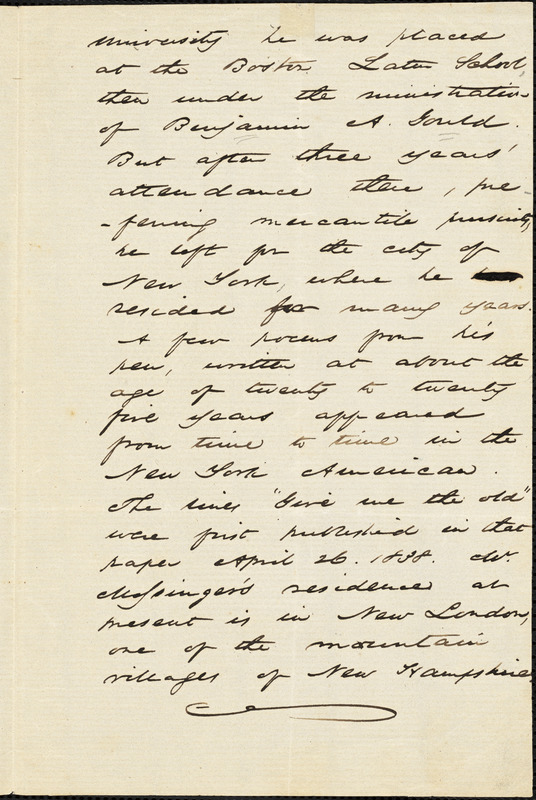 university he was placed
at the Boston Latin School,
then under the ministration
of Benjamin A. Gould.
But after three years'
attendance there, pre-
-ferring mercantile pursuits,
he left for the city of
New York, where he
resided for many years.
A few poems from his
pen, written at about the
age of twenty to twenty
five years appeared
from time to time in the
New York American.
The lines "Give me the old"
were first published in that
paper April 26. 1838. Mr.
Messinger's residence at
present is in New London,
one of the mountain
villages of New Hampshire